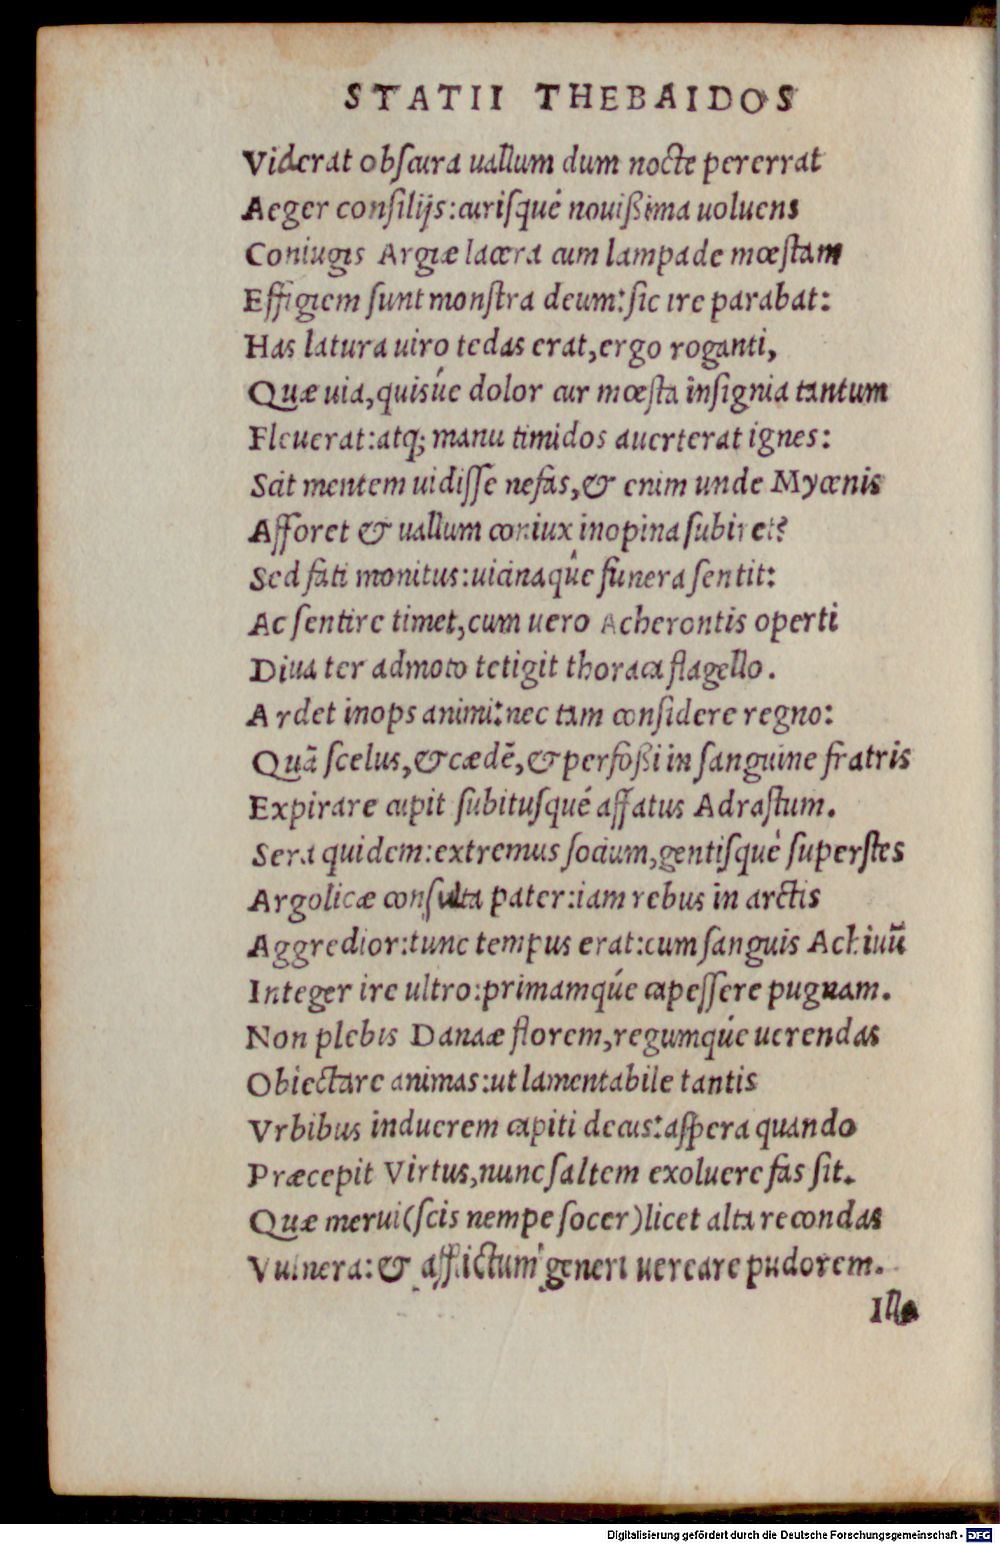 STATII THEBAIDOS
Viderat obſcura uallum dum nocte pererrat
Aeger conſilijs:curiſqué nouißima uoluens
Coniugis Argiæ lacera cum lampade mœſtam
Effigiem ſunt monſtra deum:ſic ire parabat:
Has latura uiro tedas erat,ergo roganti,
Quæ uia,quisúe dolor cur mœſta inſignia tantum
Fleuerat:atq; manu timidos auerterat ignes:
Scit mentem uidiſſe nefas,& enim unde Mycenis
Afforet & uallum coniux inopina ſubiret?
Sed fati monitus:uicinaqúe funera ſentit:
Ac ſentire timet,cum uero Acherontis operti
Diua ter admoto tetigit thoraca flagello.
Ardet inops animi:nec tam conſidere regno:
Quã ſcelus,& cædẽ,& perfoßi in ſanguine fratris
Expirare cupit ſubituſqué affatus Adraſtum.
Sera quidem:extremus ſocium,gentiſqué ſuperſtes
Argolicæ conſulta pater:iam rebus in arctis
Aggredior:tunc tempus erat:cum ſanguis Achiuũ
Integer ire ultro:primamqúe capeſſere pugnam.
Non plebis Danaæ florem,regumqúe uerendas
Obiectare animas:ut lamentabile tantis
Vrbibus induerem capiti decus:aſpera quando
Præcepit Virtus,nunc ſaltem exoluere fas ſit.
Quæ merui(ſcis nempe ſocer)licet alta recondas
Vulnera:& afflictum generi uereare pudorem.
Illa
Digitalisierung gefördert durch die Deutsche Forschungsgemeinschaft - DFG